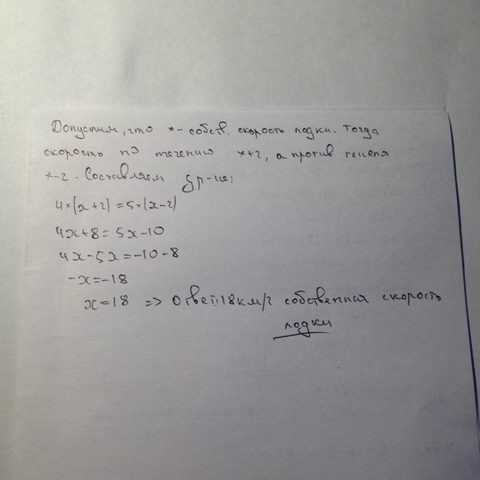 Допустим, что x - собств. скорость лодки. Тогда
скорость по течению x+2, а против течения
x-2. Составляем ур-ие:
4*(x+2)=5*(x-2)
4x+8=5x-10
4x-5x=-10-8
-x=-18
x=18 => Ответ: 18км/ч собственная скорость
лодки